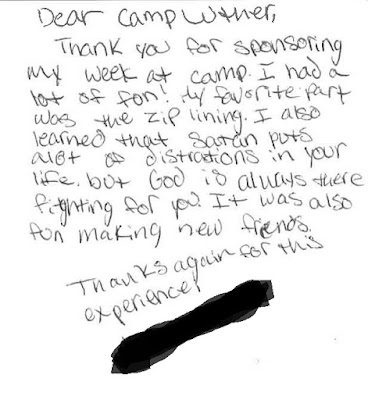 Dear Camp Luther,
Thank you for sponsoring
my week at camp. I had a
lot of fun! My favorite part
was the zip lining. I also
learned that Satan puts
alot of distractions in your
life, but God is always there
fighting for you. It was also
fun making new friends.
Thanks again for this
experience!